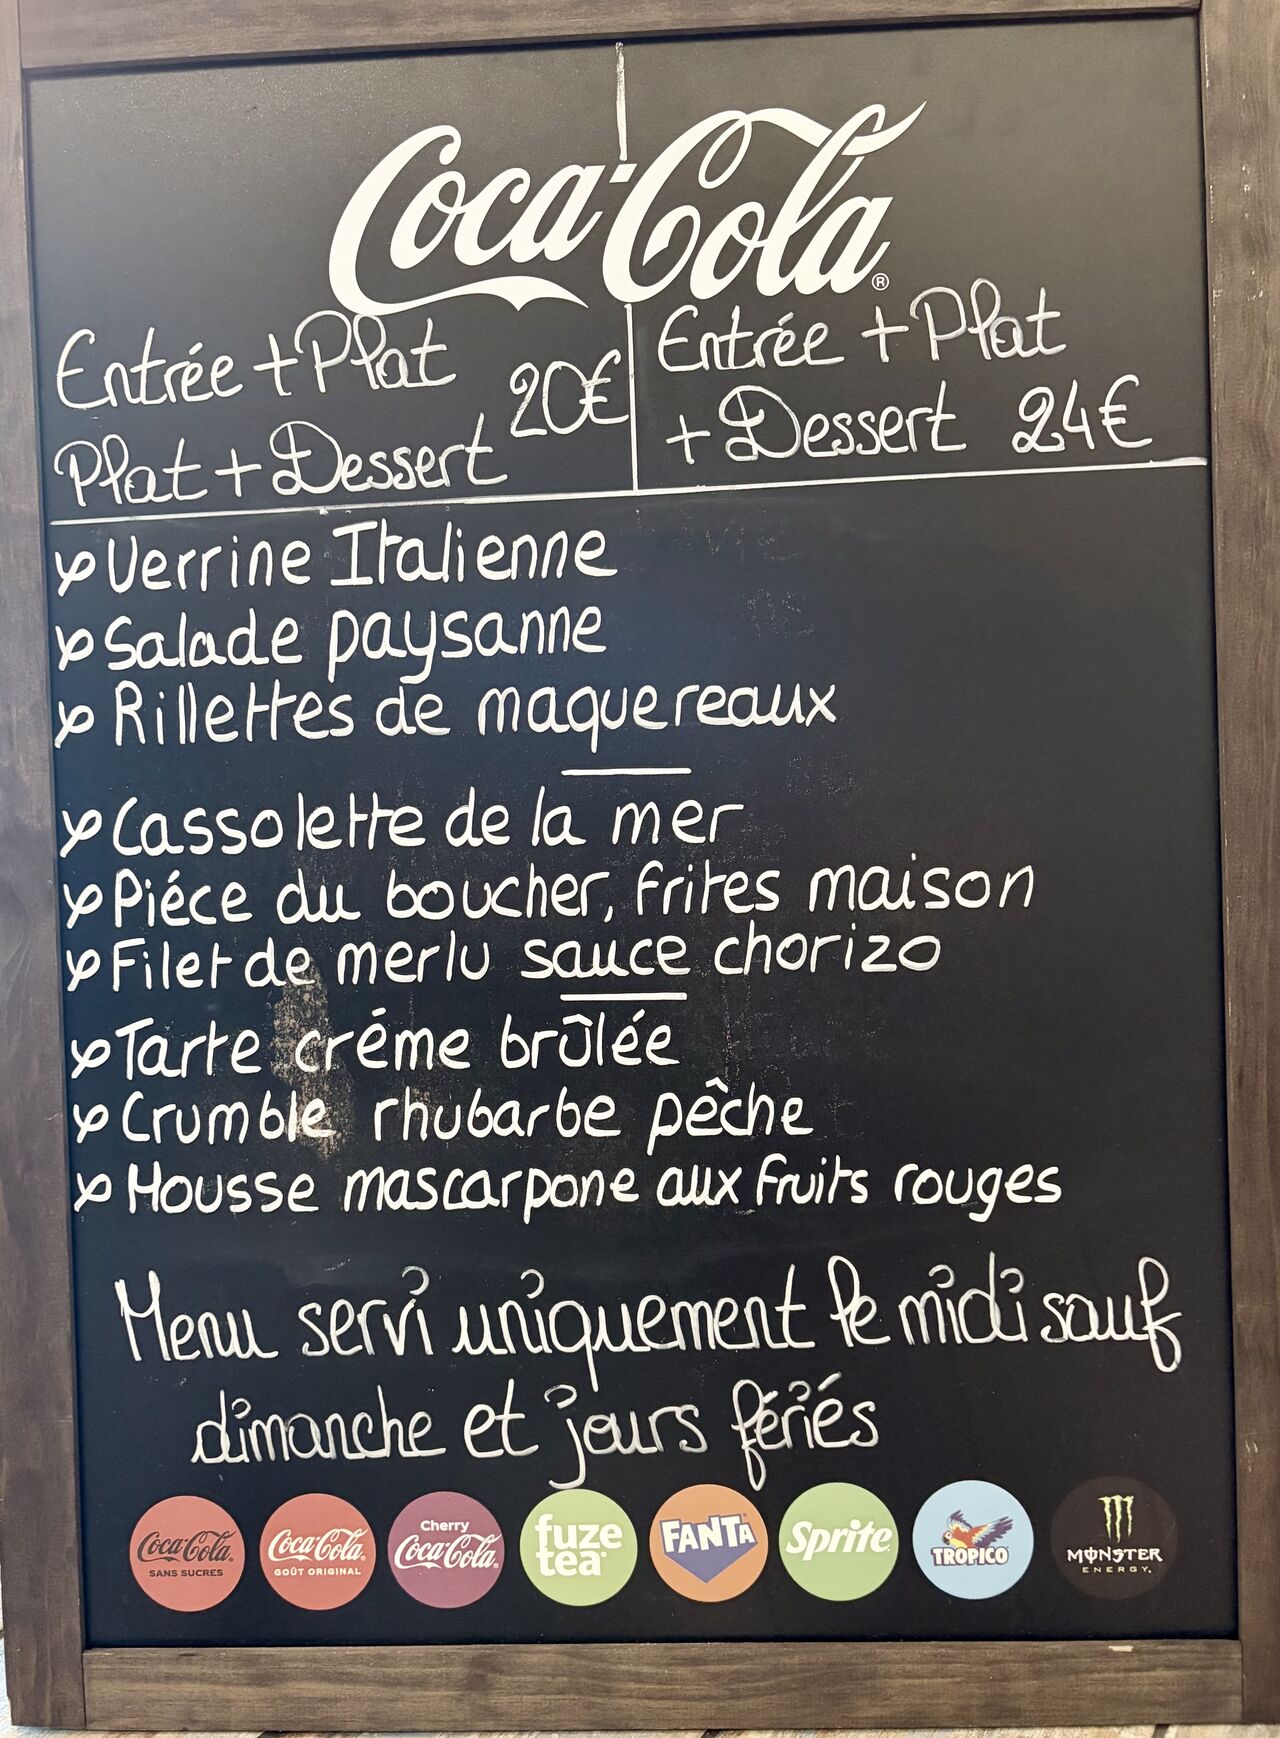 Coca-Cola®
Entrée + Plat
Plat + Dessert
20€
Entrée + Plat
+ Dessert 24€
Verrine Italienne
Salade paysanne
Rillettes de maquereaux
Cassolette de la mer
Piéce du boucher, frites maison
Filet de merlu sauce chorizo
Tarte créme brûlée
Crumble rhubarbe pêche
Mousse mascarpone aux fruits rouges
Menu servi uniquement le midi sauf
dimanche et jours fériés
Coca-Cola® SANS SUCRES
Coca-Cola® GOÛT ORIGINAL
Cherry Coca-Cola®
fuze tea®
FANTA
Sprite
TROPICO
MONSTER ENERGY